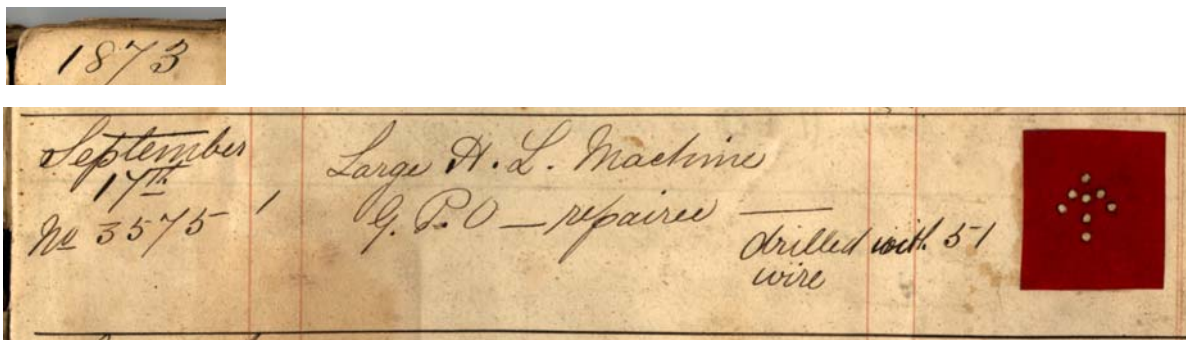 1873
September
17th
No 3575 1
Large H. L. Machine
G. P. O — repaired —
drilled with 51
wire